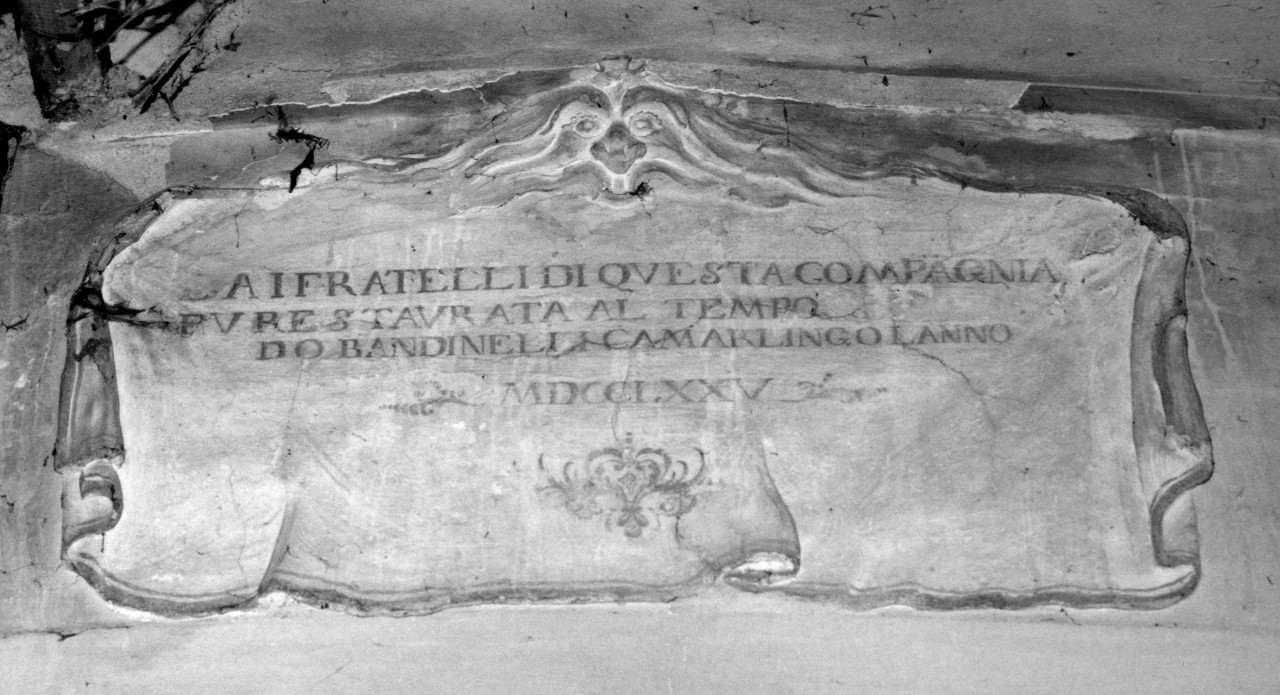 DA I FRATELLI DI QVESTA COMPAGNIA
FV RESTAVRATA AL TEMPO
DO BANDINELLI CAMARLINGO LANNO
MDCCLXXV